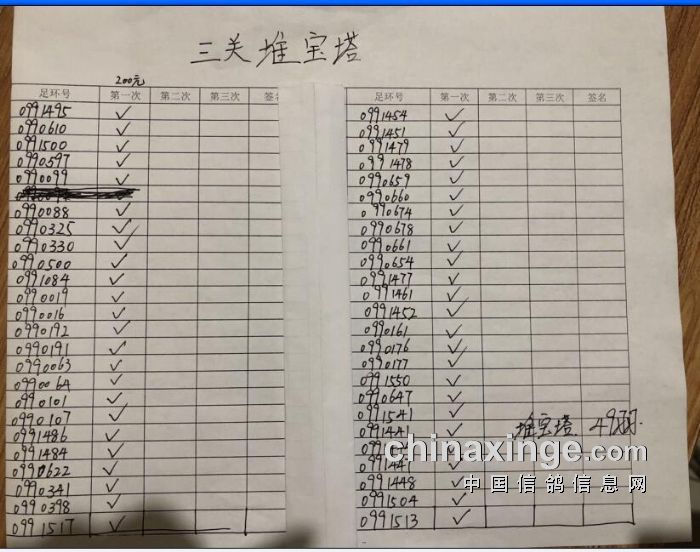 三关堆宝塔
200元
足环号 第一次 第二次 第三次 签名
0991495 ✓
0990610 ✓
0991500 ✓
0990597 ✓
0990099 ✓
0990088 ✓
0990325 ✓
0990330 ✓
0990500 ✓
0991084 ✓
0990019 ✓
0990016 ✓
0990192 ✓
0990191 ✓
0990063 ✓
0990064 ✓
0990101 ✓
0990107 ✓
0991486 ✓
0991484 ✓
0990622 ✓
0990341 ✓
0990398 ✓
0991517 ✓
足环号 第一次 第二次 第三次 签名
0991454 ✓
0991451 ✓
0991479 ✓
0991478 ✓
0990659 ✓
0990660 ✓
0990674 ✓
0990678 ✓
0990661 ✓
0990654 ✓
0991477 ✓
0991461 ✓
0991452 ✓
0990161 ✓
0990176 ✓
0990177 ✓
0991550 ✓
0990647 ✓
0991541 ✓
0991441 ✓
堆宝塔 49羽.
0991441 ✓
0991448 ✓
0991504 ✓
0991513 ✓
chinaxinge.com
中国信鸽信息网